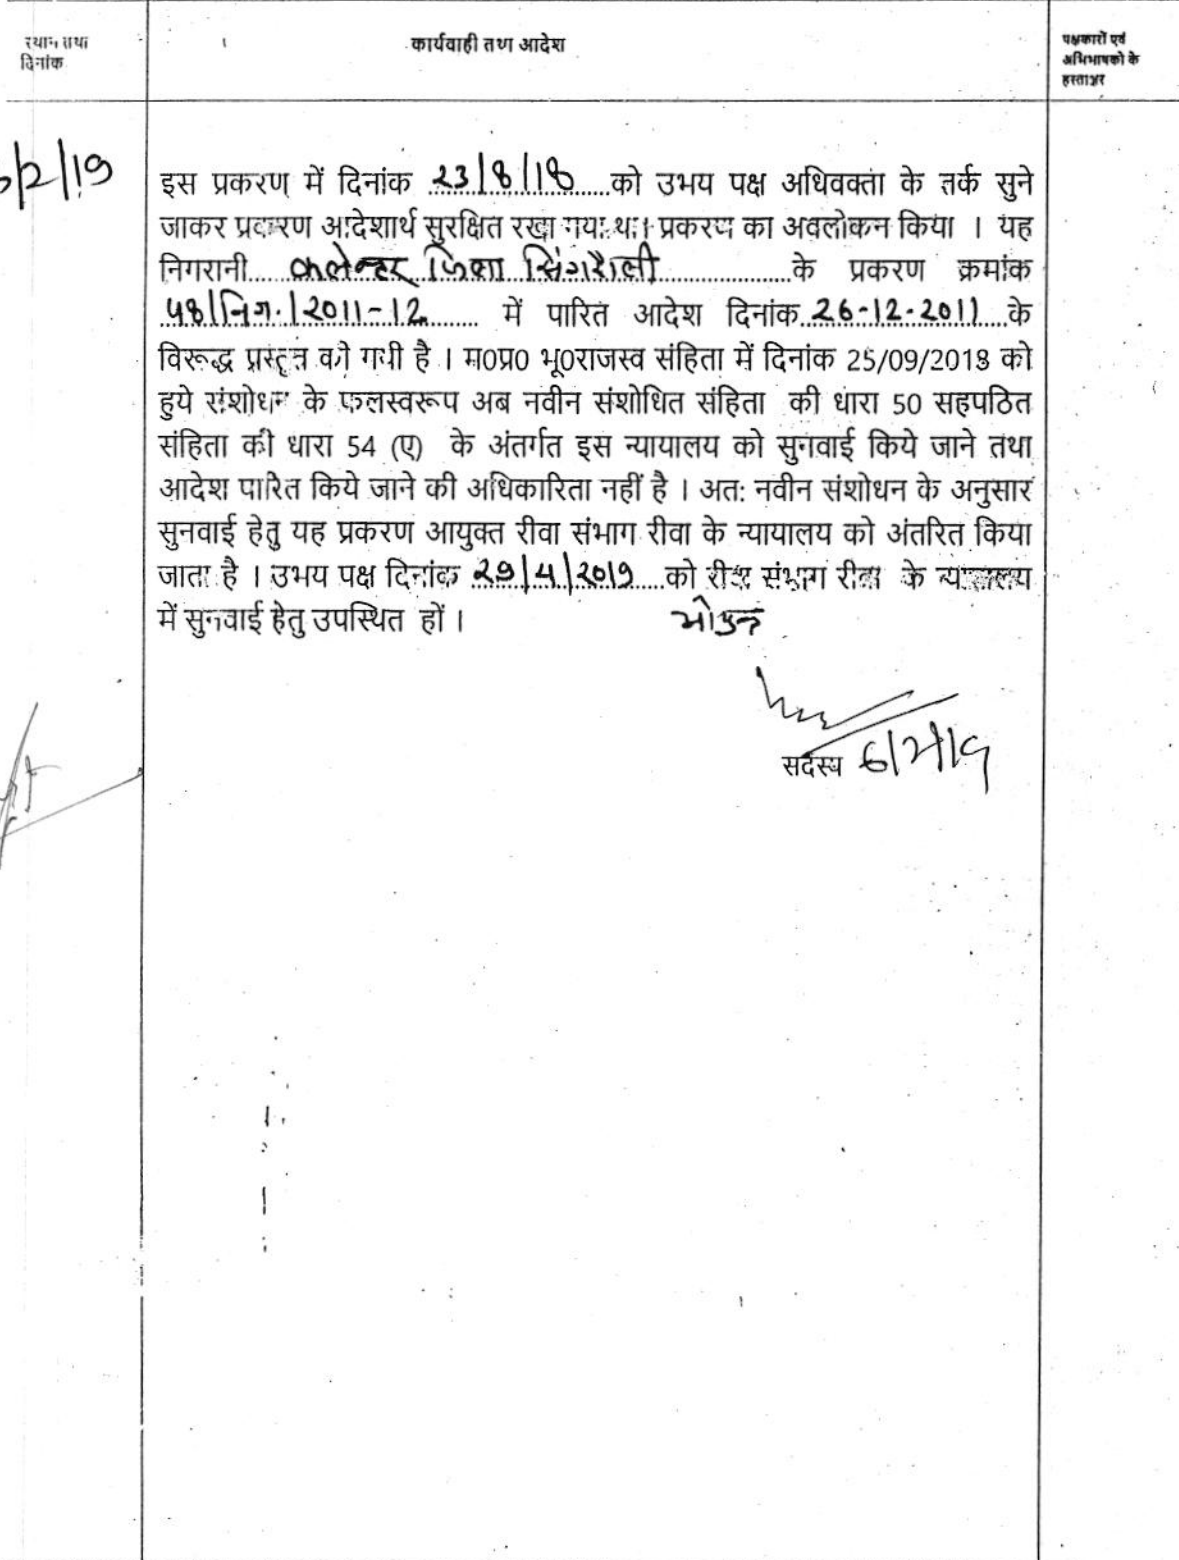 स्थान तथा
दिनांक
कार्यवाही तथा आदेश
पक्षकारों एवं
अभिभाषकों के
हस्ताक्षर
/2/19
इस प्रकरण में दिनांक 23/8/18 को उभय पक्ष अधिवक्ता के तर्क सुने
जाकर प्रकरण आदेशार्थ सुरक्षित रखा गया था। प्रकरण का अवलोकन किया । यह
निगरानी कलेक्टर जिला सिंगरौली के प्रकरण क्रमांक
48/निग./2011-12 में पारित आदेश दिनांक 26-12-2011 के
विरूद्ध प्रस्तुत की गयी है । म0प्र0 भू0राजस्व संहिता में दिनांक 25/09/2018 को
हुये संशोधन के फलस्वरूप अब नवीन संशोधित संहिता की धारा 50 सहपठित
संहिता की धारा 54 (ए) के अंतर्गत इस न्यायालय को सुनवाई किये जाने तथा
आदेश पारित किये जाने की अधिकारिता नहीं है । अत: नवीन संशोधन के अनुसार
सुनवाई हेतु यह प्रकरण आयुक्त रीवा संभाग रीवा के न्यायालय को अंतरित किया
जाता है । उभय पक्ष दिनांक 29/4/2019 को रीवा संभाग रीवा के न्यायालय
में सुनवाई हेतु उपस्थित हों ।
सदस्य 6/2/19